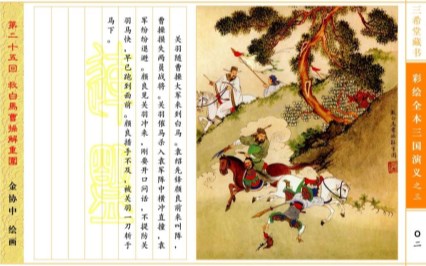 第二十五回 救白马曹操解重围
金协中 绘画
关羽随曹操大军来到白马。袁绍先锋颜良前来叫阵，
曹操损失两员战将。关羽催马杀入袁军阵中横冲直撞，袁
军纷纷退避。颜良见关羽冲来，刚要开口问话，不提防关
羽马快，早已跑到面前。颜良措手不及，被关羽一刀斩于
马下。
三希堂藏书
彩绘全本三国演义之三
〇二